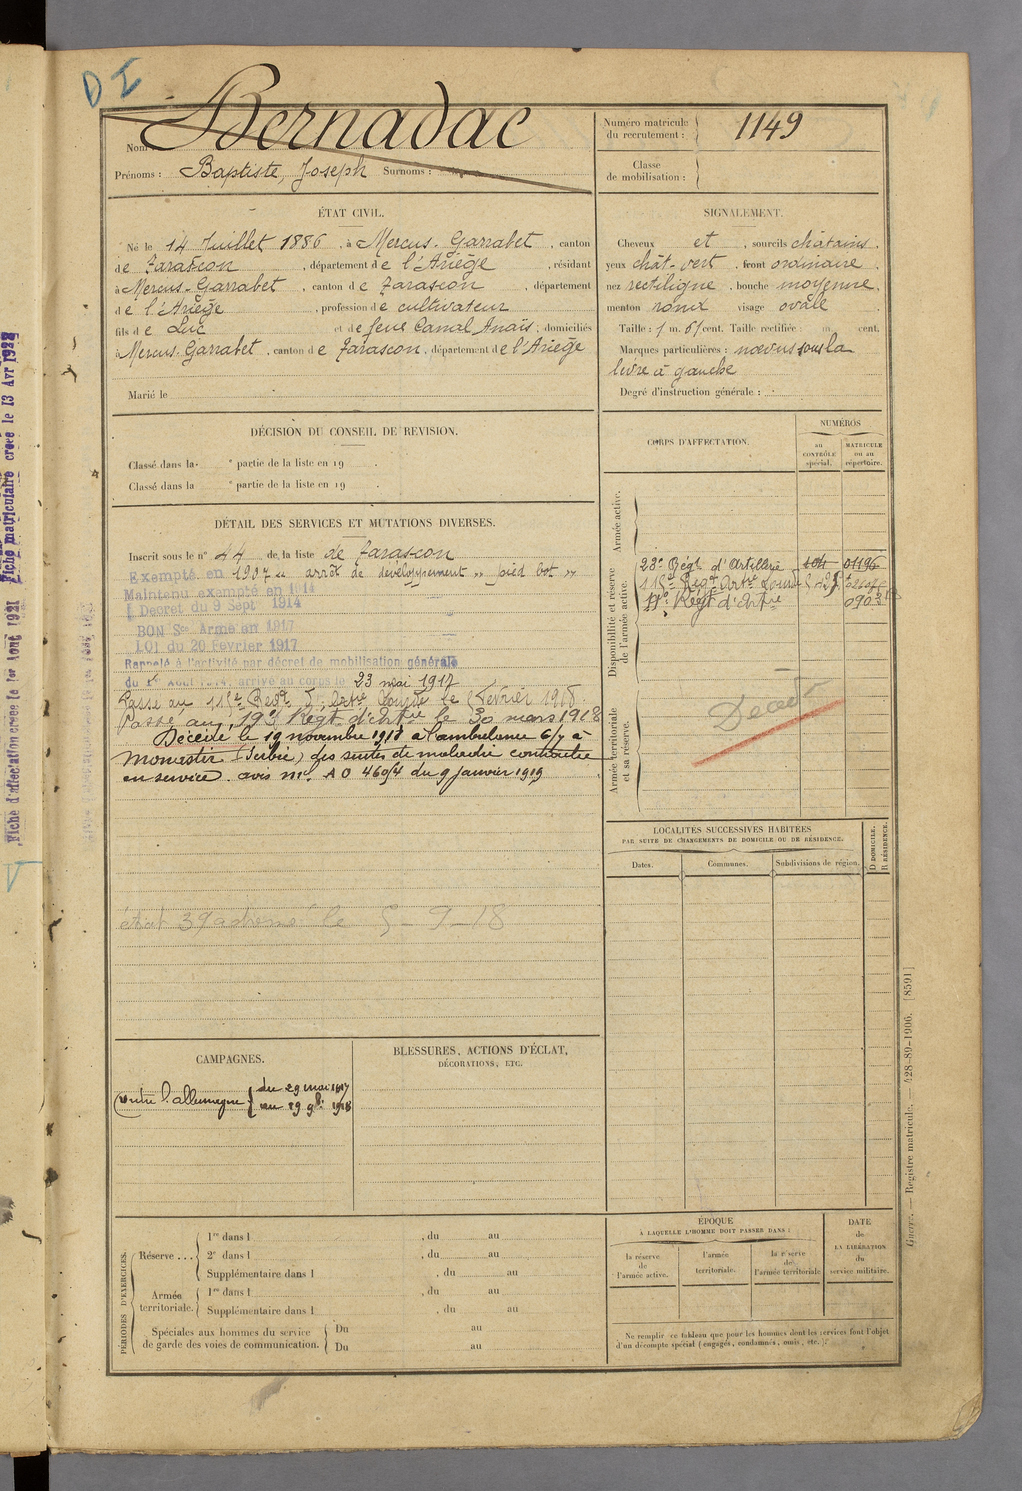 D I
Nom : Bernadac
Prénoms : Baptiste, Joseph Surnoms :
Numéro matricule du recrutement : 1149
Classe de mobilisation :
ÉTAT CIVIL.
Né le 14 Juillet 1886, à Mercus-Garrabet, canton
de Tarascon, département de l'Ariège, résidant
à Mercus-Garrabet, canton de Tarascon, département
de l'Ariège, profession de cultivateur
fils de Luc et de feue Canal Anaïs, domiciliés
à Mercus-Garrabet, canton de Tarascon, département de l'Ariège
Marié le
SIGNALEMENT.
Cheveux et, sourcils châtains,
yeux chât-vert, front ordinaire,
nez rectiligne, bouche moyenne,
menton rond visage ovale
Taille : 1 m. 61 cent. Taille rectifiée : m. cent.
Marques particulières : nœvus sous la
lèvre à gauche
Degré d'instruction générale :
DÉCISION DU CONSEIL DE REVISION.
Classé dans la e partie de la liste en 19 .
Classé dans la e partie de la liste en 19 .
DÉTAIL DES SERVICES ET MUTATIONS DIVERSES.
Inscrit sous le n° 44 de la liste de Tarascon
Exempté en 1907 « arrêt de développement » pied bot »
Maintenu exempté en 1914
Décret du 9 Sept 1914
BON Sce Armé en 1917
LOI du 20 Février 1917
Rappelé à l'activité par décret de mobilisation générale
du 1er Août 1914, arrivé au corps le 23 mai 1917
Passé au 115e Régt d'Artie Lourde le Février 1918.
Passé au 19e Régt d'Artie le 30 mars 1918
Décédé le 19 novembre 1918 à l'ambulance 6/7 à
Monastir (Serbie) des suites de maladie contractée
en service. avis mel AO 46054 du 9 janvier 1919
état 39 adressé le 5-9-18
CORPS D'AFFECTATION.
NUMÉROS
au CONTRÔLE spécial.
MATRICULE ou au répertoire.
Armée active.
Disponibilité et réserve de l'armée active.
23e Régt d'Artillerie 104 01196
115e Régt Artie Lourde
19e Régt d'Artie
Armée territoriale et sa réserve.
Décédé
LOCALITÉS SUCCESSIVES HABITÉES
PAR SUITE DE CHANGEMENTS DE DOMICILE OU DE RÉSIDENCE.
Dates. Communes. Subdivisions de région.
D DOMICILE.
R RÉSIDENCE.
CAMPAGNES.
Contre l'Allemagne { du 29 mai 1917
au 19 9bre 1918
BLESSURES, ACTIONS D'ÉCLAT,
DÉCORATIONS, ETC.
PÉRIODES D'EXERCICES.
Réserve ...
1re dans l , du au
2e dans l , du au
Supplémentaire dans l , du au
Armée territoriale.
1re dans l , du au
Supplémentaire dans l , du au
Spéciales aux hommes du service
de garde des voies de communication.
Du au
Du au
ÉPOQUE
À LAQUELLE L'HOMME DOIT PASSER DANS :
la réserve de l'armée active.
l'armée territoriale.
la réserve de l'armée territoriale
DATE de LA LIBÉRATION du service militaire.
Ne remplir ce tableau que pour les hommes dont les services font l'objet
d'un décompte spécial (engagés, condamnés, omis, etc.).
Guerre. — Registre matricule. — 428-89-1906. [8591]
Fiche d'affectation créée le 1er Août 1921
Fiche matriculaire créée le 13 Avr 1922